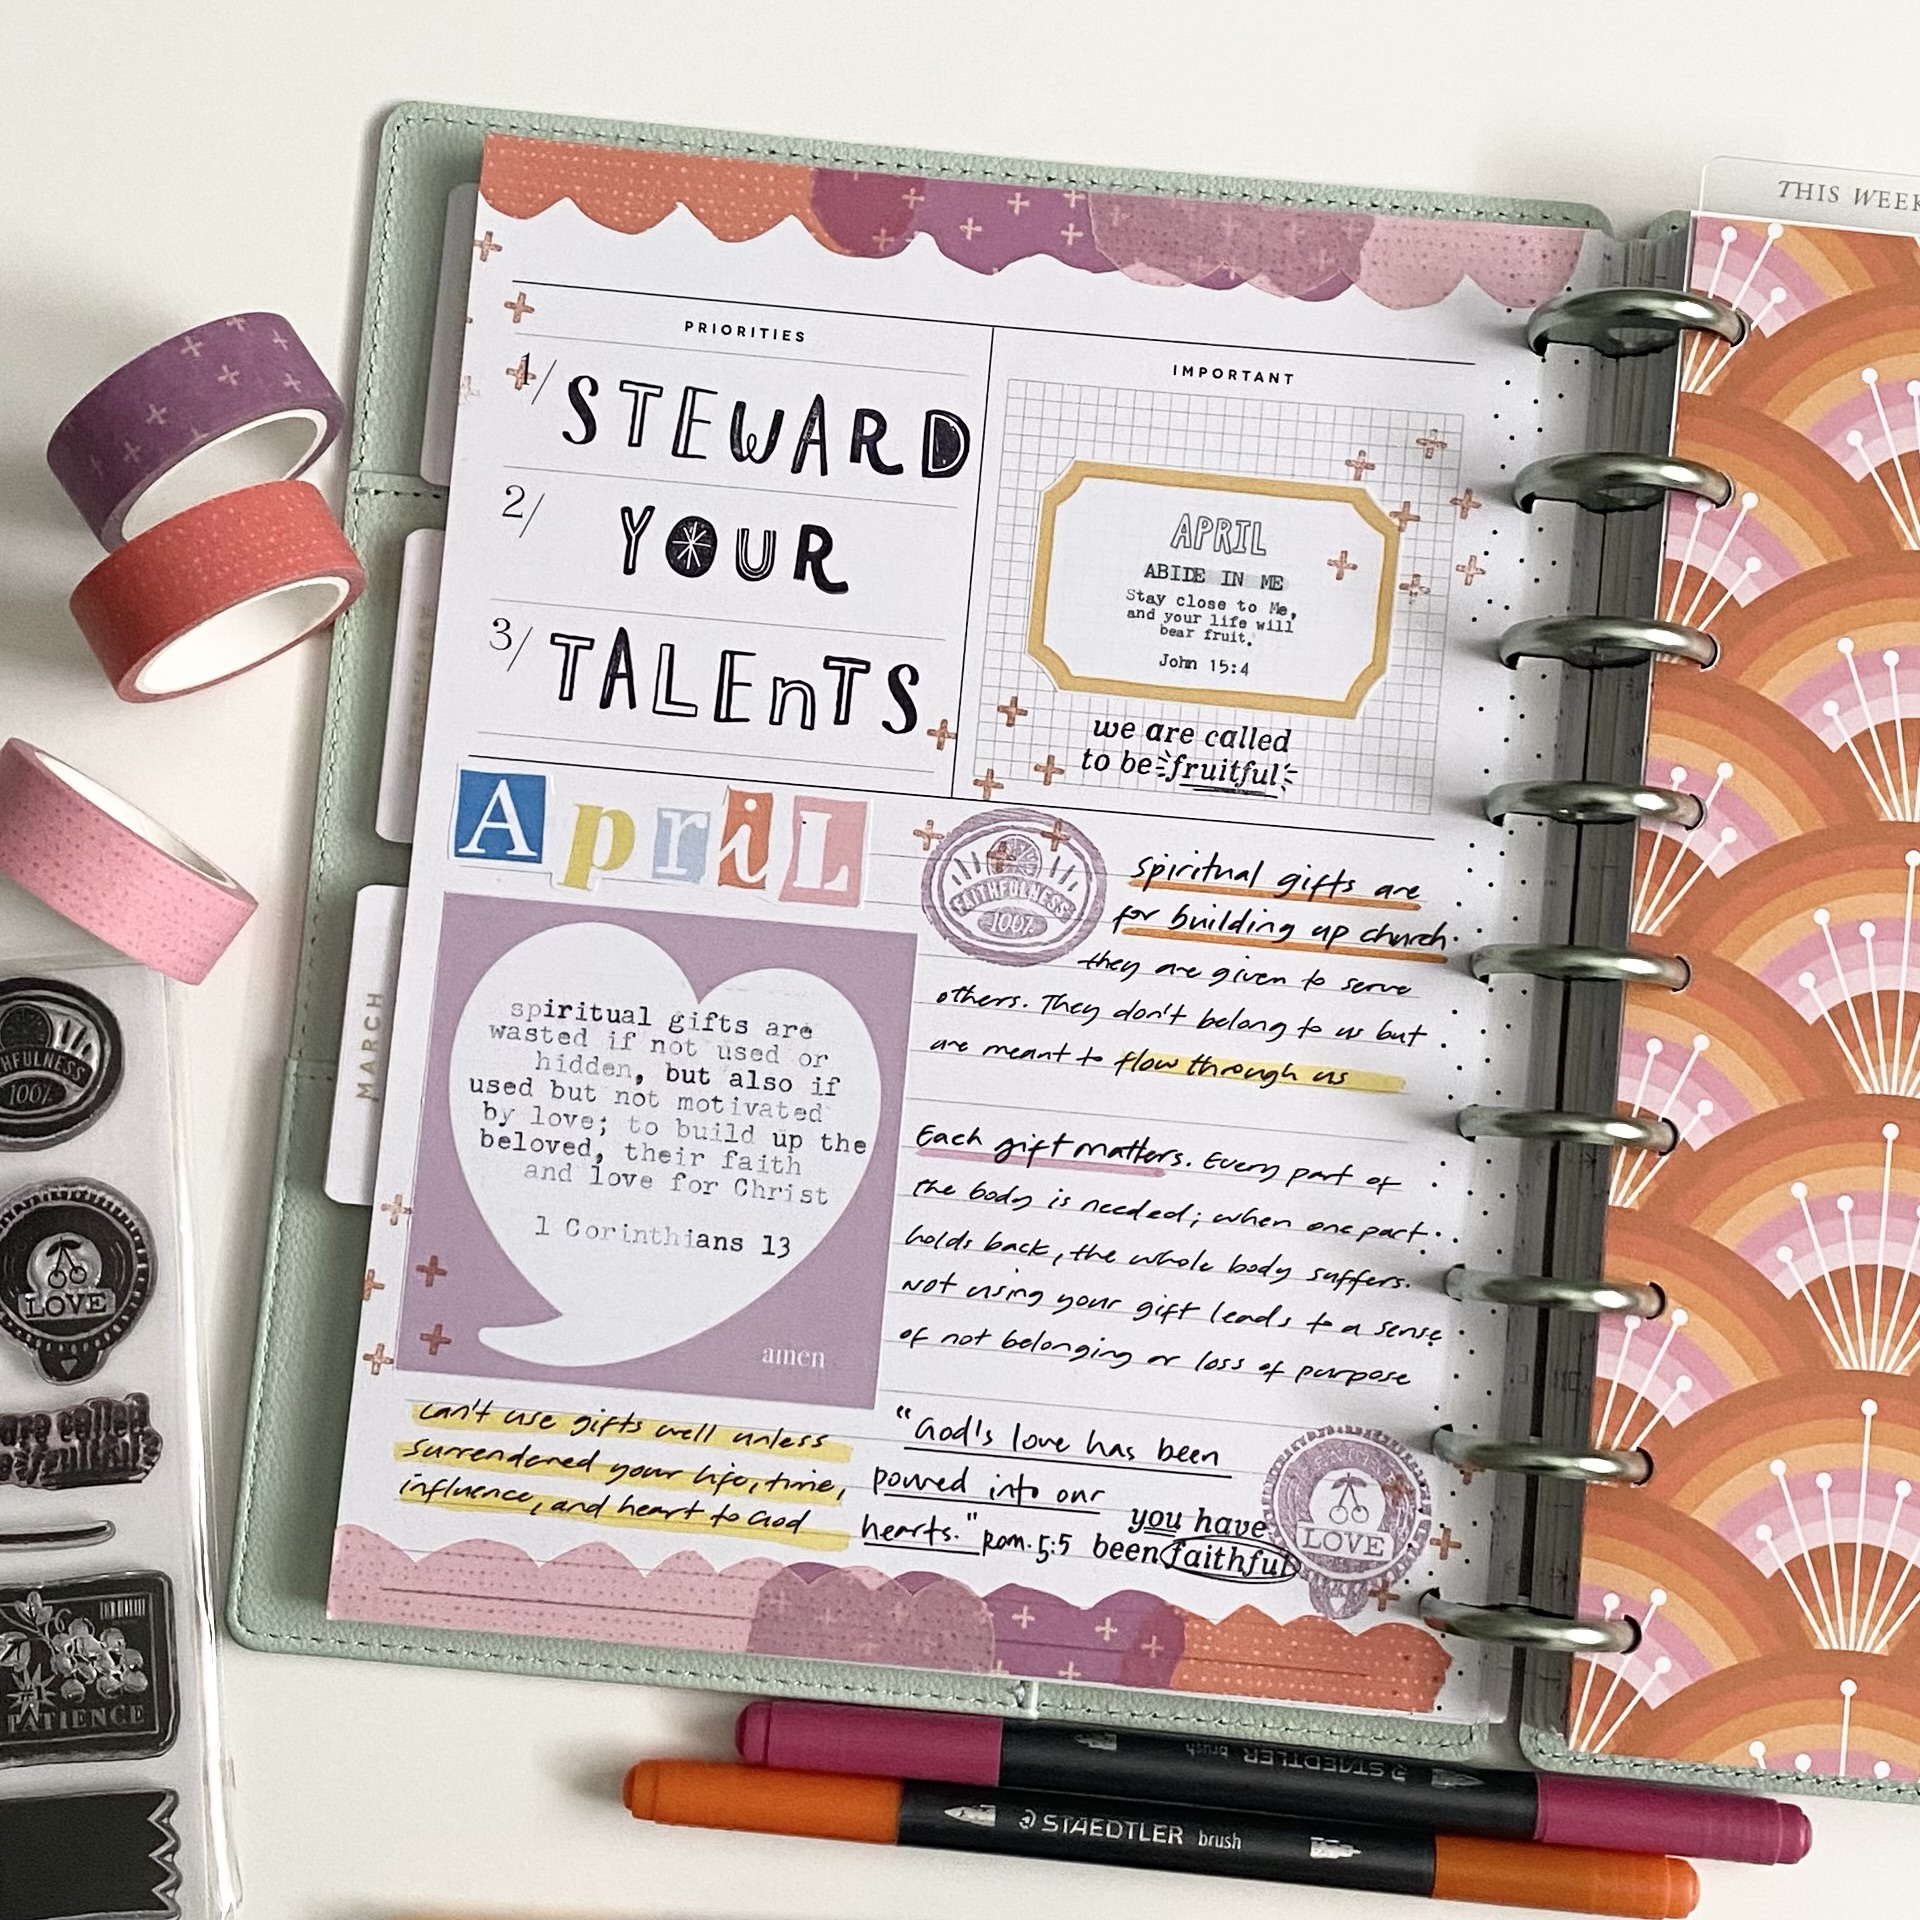 THIS WEEK
PRIORITIES
1/ STEWARD
2/ YOUR
3/ TALEnTS
IMPORTANT
APRIL
ABIDE IN ME
Stay close to Me,
and your life will
bear fruit.
John 15:4
we are called
to be fruitful
ApriL
FAITHFULNESS
100%
spiritual gifts are
for building up church.
they are given to serve
others. They don't belong to us but
are meant to flow through us
spiritual gifts are
wasted if not used or
hidden, but also if
used but not motivated
by love; to build up the
beloved, their faith
and love for Christ
1 Corinthians 13
amen
Each gift matters. Every part of
the body is needed; when one part
holds back, the whole body suffers.
Not using your gift leads to a sense
of not belonging or loss of purpose
can't use gifts well unless
surrendered your life, time,
influence, and heart to God
"God's love has been
poured into our
hearts." Rom. 5:5
you have
been faithful
LOVE
MARCH
THFULNESS
100%
LOVE
are called
e fruitful
PATIENCE
STAEDTLER brush
STAEDTLER brush